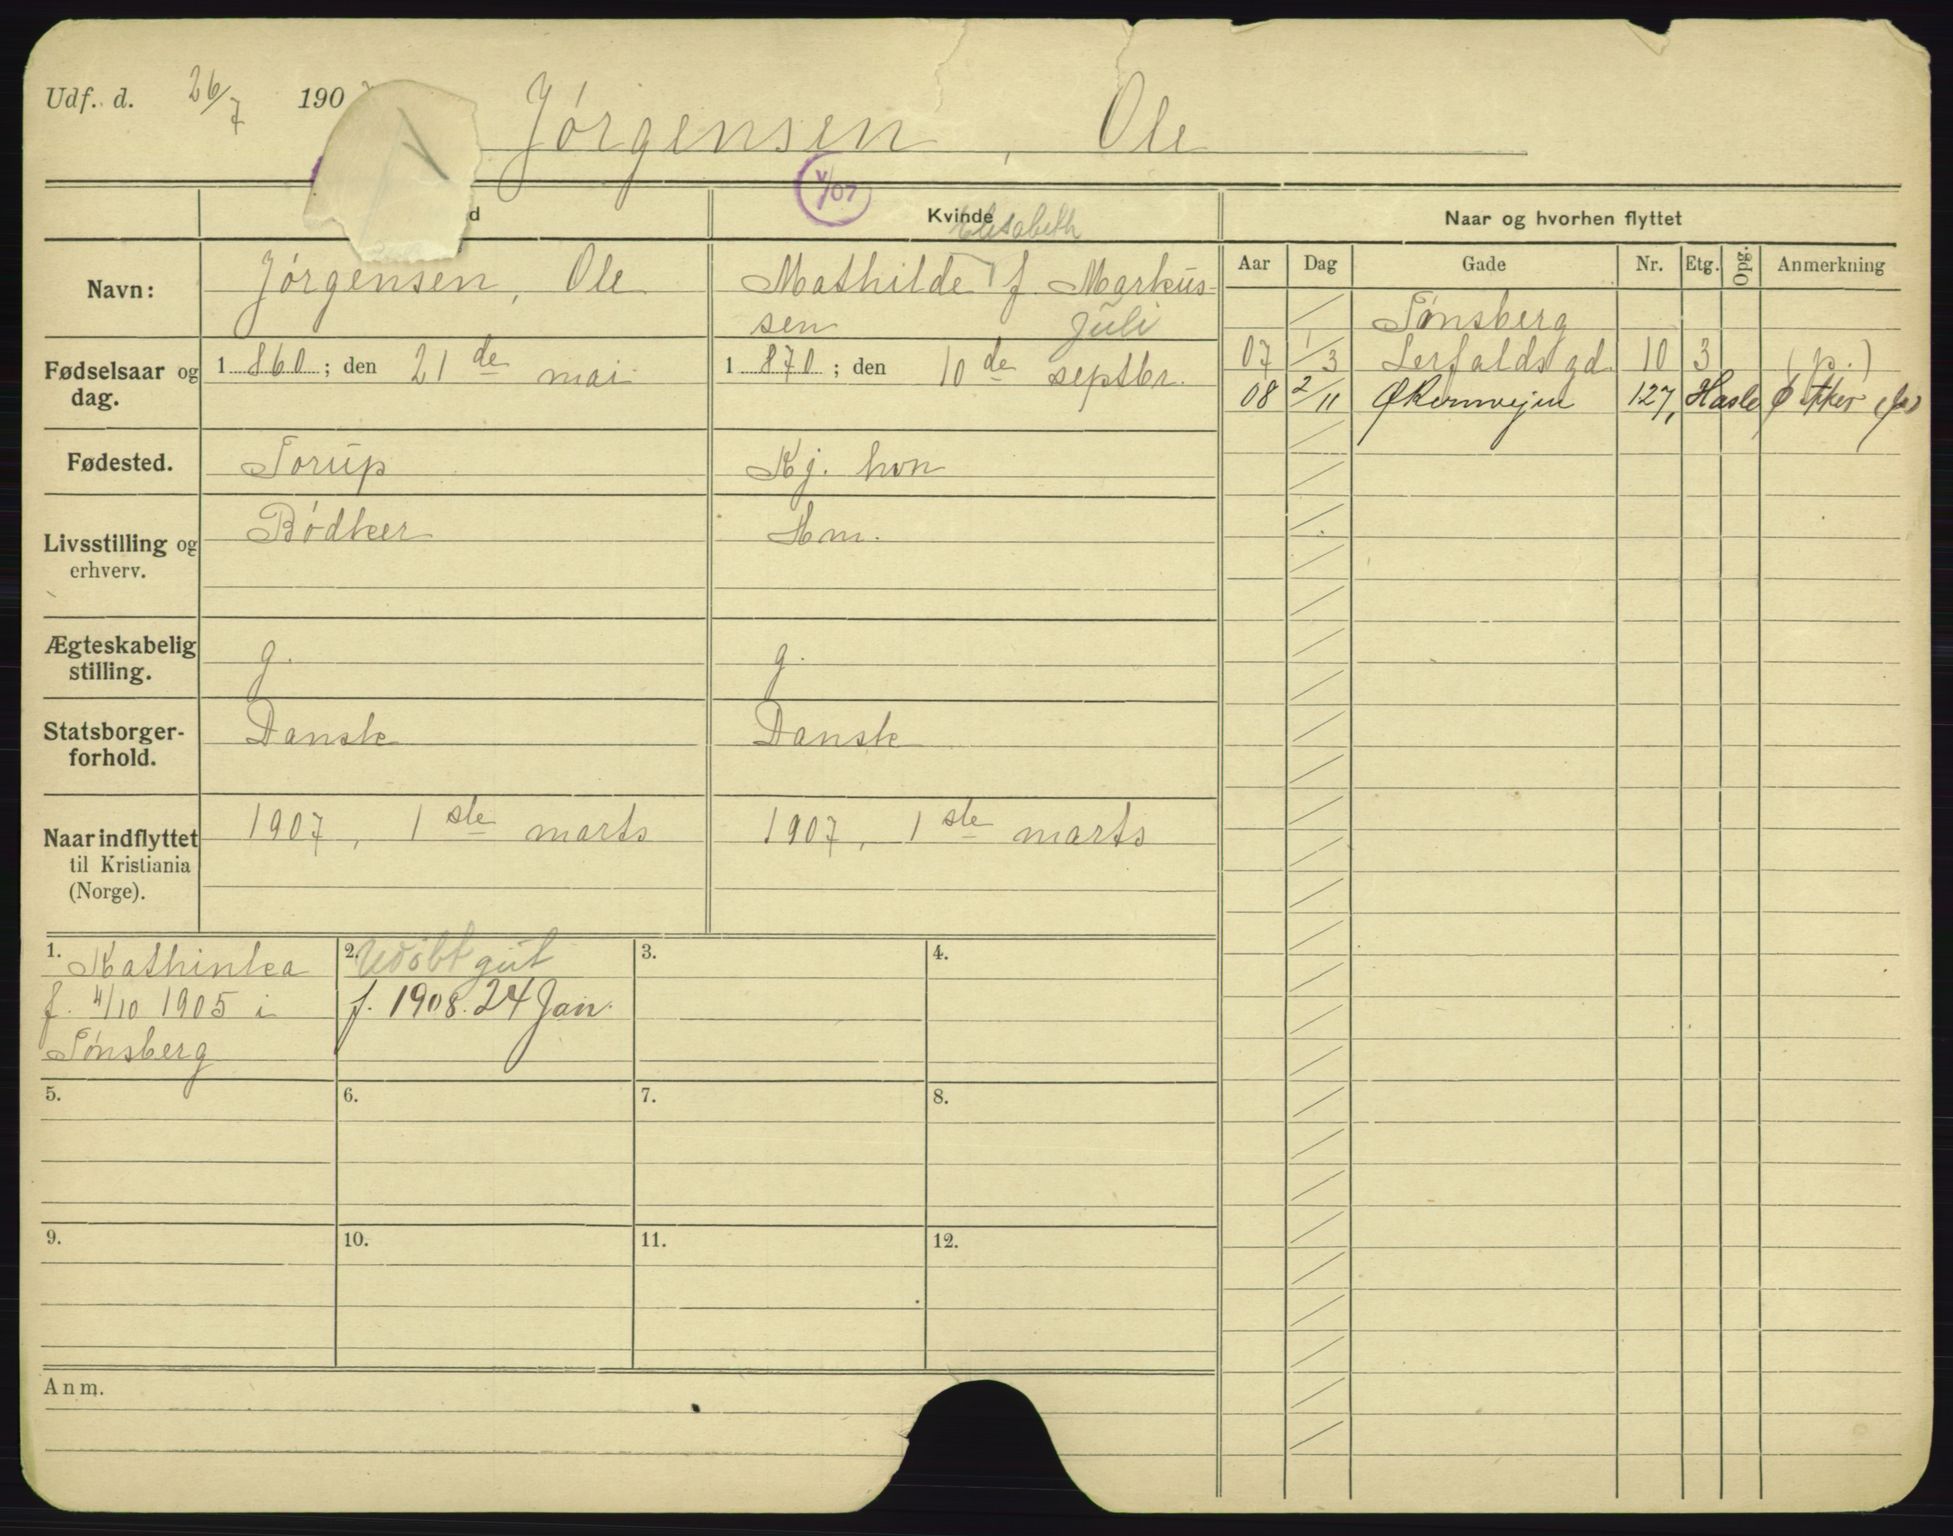 Udf. d. 26/7 190 Jörgensen, Ole
V/07
d Kvinde Naar og hvorhen flyttet
Elisabeth
Aar Dag Gade Nr. Etg. Opg. Anmerkning
Navn: Jörgensen, Ole Mathilde f. Markus-
sen Juli
Tönsberg
07 1/3 Lerfaldsgd 10 3 (p.)
08 2/11 Økernvejen 127, Hasle, Ø Aker
Fødselsaar og dag. 1 860; den 21de mai 1 870; den 10de septbr.
Fødested. Torup Kj. hvn
Livsstilling og erhverv. Bödker Hm.
Ægteskabelig stilling. g. g.
Statsborger-forhold. Dansk Dansk
Naar indflyttet til Kristiania (Norge). 1907, 1ste marts 1907, 1ste marts
1. Kathinka
f. 4/10 1905 i
Tönsberg
2. Udöbt gut
f. 1908. 24 Jan.
3.
4.
5.
6.
7.
8.
9.
10.
11.
12.
Anm.